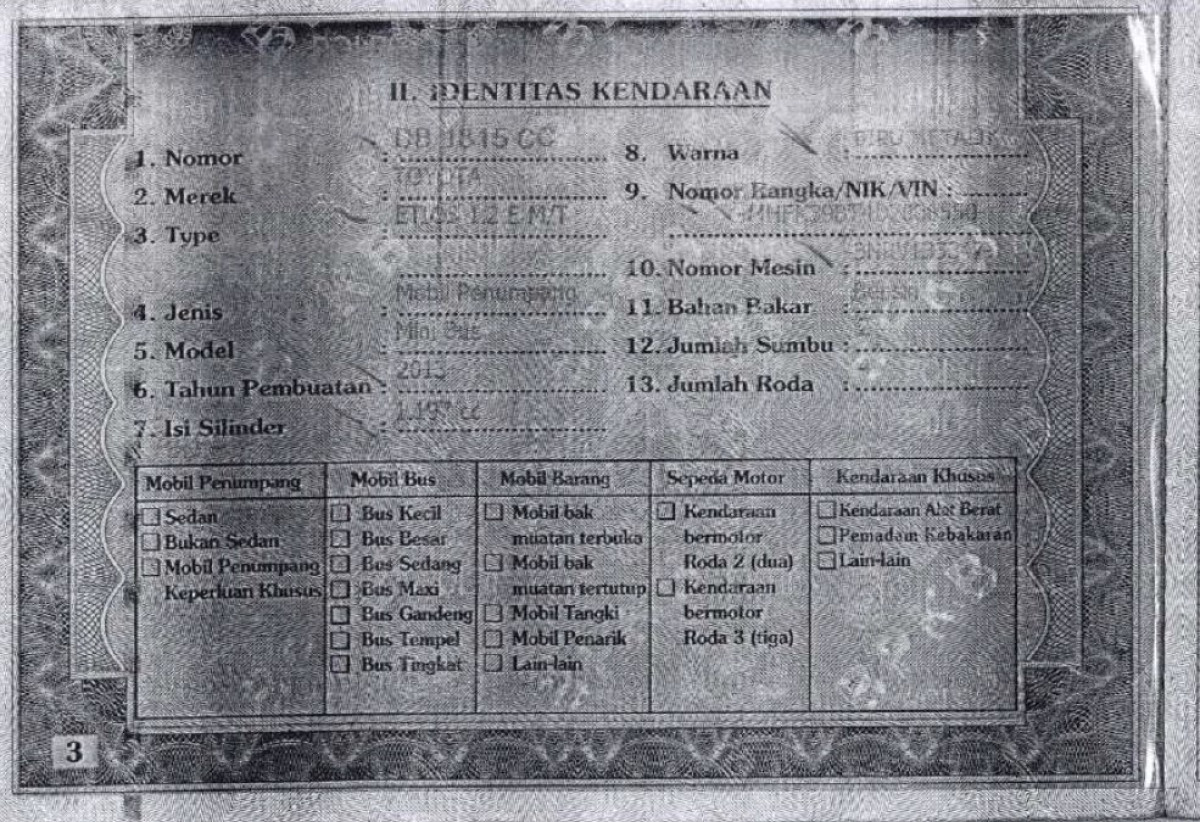 II. IDENTITAS KENDARAAN
1. Nomor : DB 1815 CC
2. Merek : TOYOTA
3. Type : ETIOS 1.2 E M/T
4. Jenis : Mobil Penumpang
5. Model : Mini Bus
6. Tahun Pembuatan : 2013
7. Isi Silinder : 1.197 cc
8. Warna : BIRU METALIK
9. Nomor Rangka/NIK/VIN :
10. Nomor Mesin :
11. Bahan Bakar : Bensin
12. Jumlah Sumbu :
13. Jumlah Roda :
Mobil Penumpang
Sedan
Bukan Sedan
Mobil Penumpang
Keperluan Khusus
Mobil Bus
Bus Kecil
Bus Besar
Bus Sedang
Bus Maxi
Bus Gandeng
Bus Tempel
Bus Tingkat
Mobil Barang
Mobil bak
muatan terbuka
Mobil bak
muatan tertutup
Mobil Tangki
Mobil Penarik
Lain-lain
Sepeda Motor
Kendaraan
bermotor
Roda 2 (dua)
Kendaraan
bermotor
Roda 3 (tiga)
Kendaraan Khusus
Kendaraan Alat Berat
Pemadam Kebakaran
Lain-lain
3